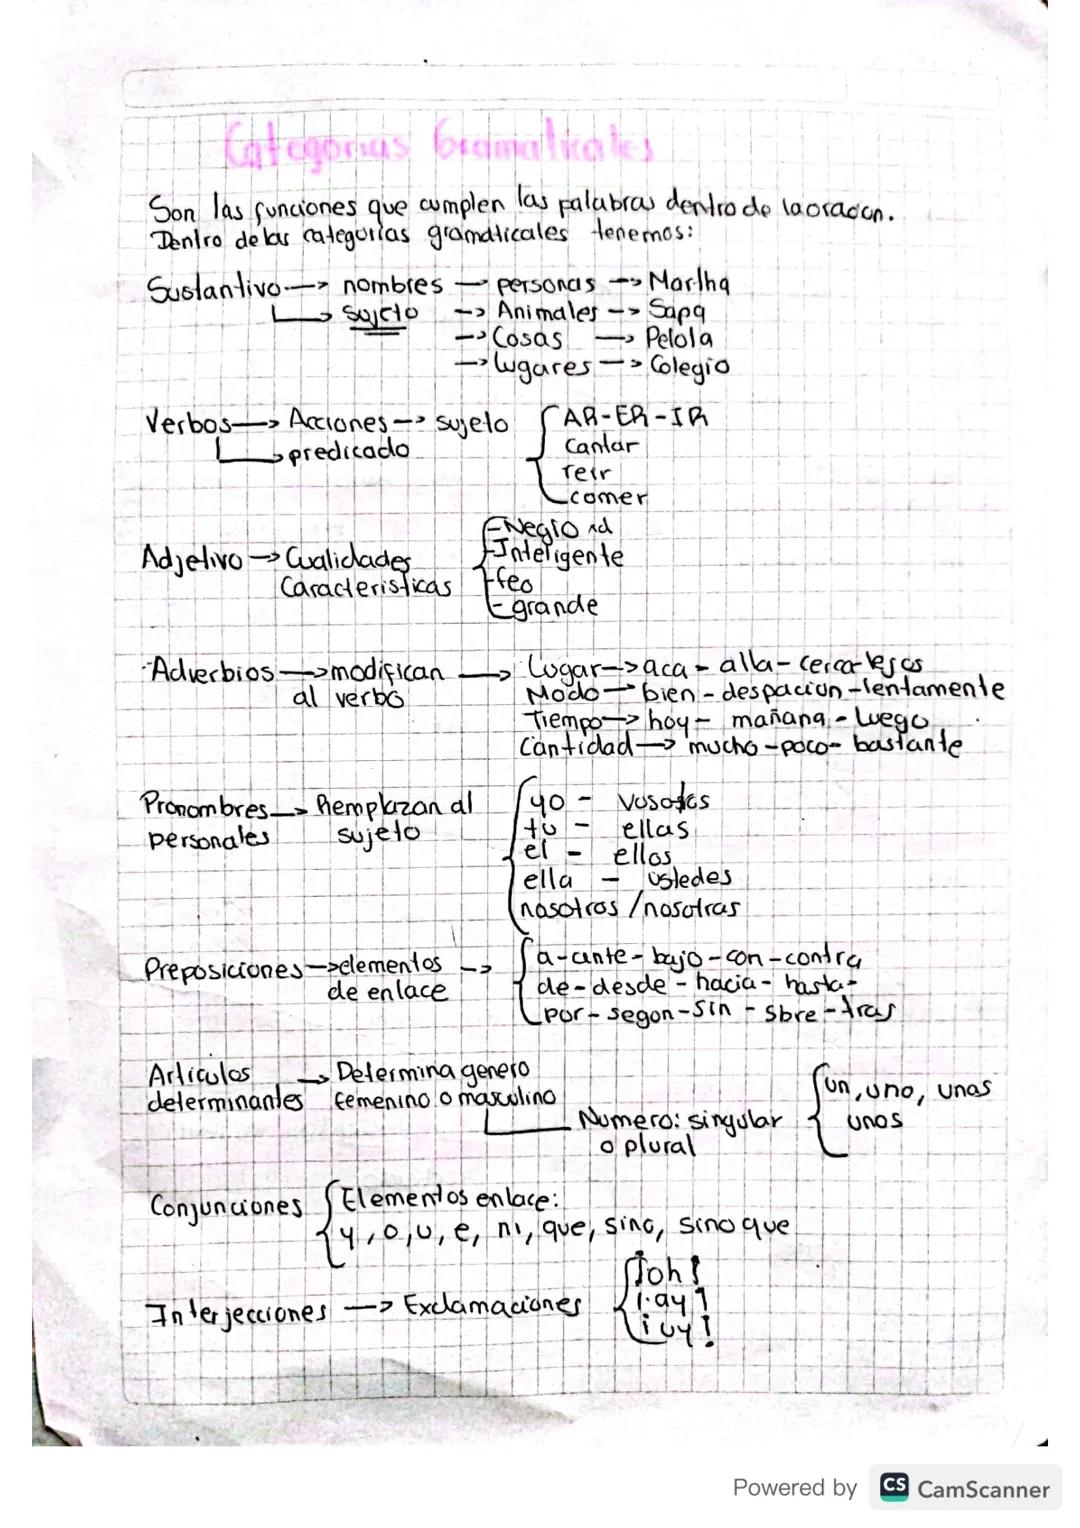 Categorias Gramaticales
Son las funciones que cumplen las palabras dentro de la oracion.
Dentro de las categorias gramaticales tenemos:
Sustantivo → nombres → personas → Martha
↳ sujeto → Animales → Sapa
→ Cosas → Pelota
→ lugares → Colegio
Verbos → Acciones → sujeto { AR-ER-IR
↳ predicado cantar
reir
comer
- Negro
Adjetivo → Cualidades - Inteligente
Caracteristicas - feo
- grande
Adverbios → modifican → Lugar → aca - alla - cerca - lejos
al verbo Modo → bien - despacion - lentamente
Tiempo → hoy - mañana - luego
Cantidad → mucho - poco - bastante
Pronombres → Remplazan al { yo - vosotros
personales sujeto tu - ellas
el - ellos
ella - ustedes
nosotros / nosotras
Preposiciones → elementos → { a - ante - bajo - con - contra
de enlace de - desde - hacia - hasta -
por - segon - sin - sbre - tras
Articulos → Determina genero { un, uno, unas
determinantes femenino o masculino
Numero: singular unos
o plural
Conjunciones { Elementos enlace:
y, o, u, e, ni, que, sino, sino que
¡oh!
Interjecciones → Exclamaciones { ¡ay!
¡uy!
Powered by CS CamScanner